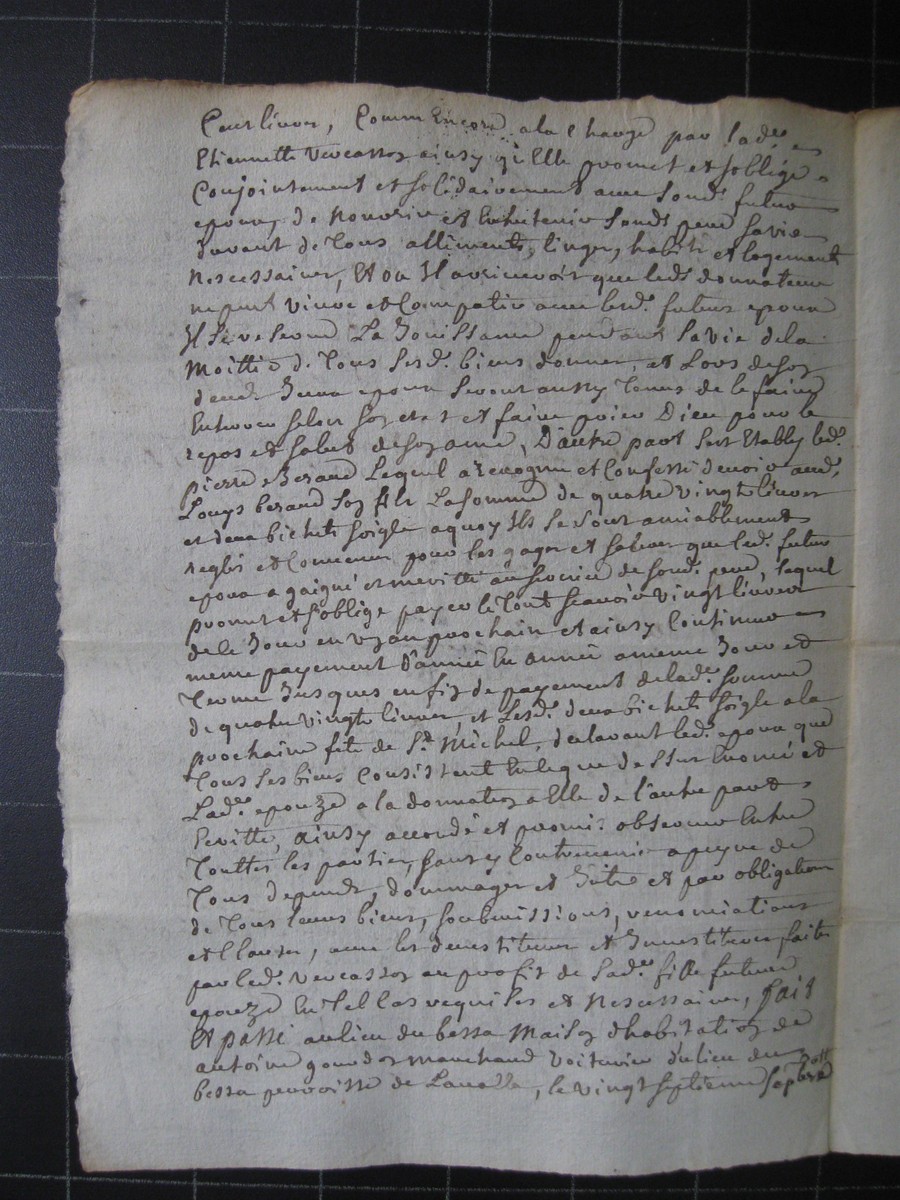 Cens livres, Comm Encore a la Charge par lade.
Etiennette Vercasson ainsy qu'Elle promet et soblige
Conjointement et sollidairement avec Sond. futur
epoux, de nourrir et Entretenir Sond. pere Sa vie
durant de Tous alliments, linges, habits et logements
Nescessaires, Et ou Il aviendroit que led. donnateur
ne put vivre et Compatir avec lesd. futurs epoux
Il se reserve La Jouissance pendant Sa vie de la
Moittié d. Tous Sesd. biens donnes, et Lors de son
deceds Iceux epoux Seront aussy Tenus de le faire
Enterrer selon son etat et faire prier Dieu pour le
repos et salut de son ame, D'autre part Sest Etably led.
pierre Beraud Lequel a recognu et Confessé devoir aud.
Louys beraud son fils La somme de quatre vingt livres
et deux bichets soigle a quoy Ils Se sont amiablement
reglés et Convenus pour les gages et salaires que led. futur
epoux a gaigné et meritté au service de sond. pere, lequel
promet et s'oblige payer le Tout scavoir vingt livres
de le Jour en un an prochain et ainsy Continuer
meme payement d'année En année a meme Jour et
Terme Jusques en fin de payement de lade. somme
de quatre vingt livres, et Lesd. deux bichets soigle a la
prochaine fete de St. Michel, declarant led. epoux que
Tous ses biens Consistent En ce que dessus Enoncé et
Lade. epouze a la donnation a Elle de l'autre part
Ecritte, ainsy accordé et promis observer Entre
Touttes les parties, sans y Contrevenir a peyne de
Tous depends, dommages et Intret et par obligation
de Tous leurs biens, soubmissions, renonciations
et Clauses, avec les demestitures et Investitures faites
par led. Vercasson au profit de Sade. fille future
epouze En Tel Cas requises et Nescessaires, Fait
Et passé au lieu du bessa Maison d'habitation de
antoine gourdon marchand Voiturier du lieu du
bessa parroisse de Lavalla, le vingt septieme Sepbre